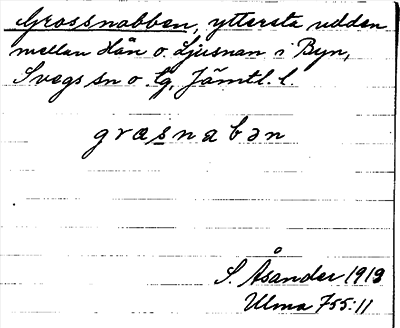 Grossnabben, yttersta udden
mellan Hån o. Ljusnan i Byn,
Svegs sn o. tg, Jämtl. l.
grɑsnabən
S. Åsander 1919
Ulma 755:11